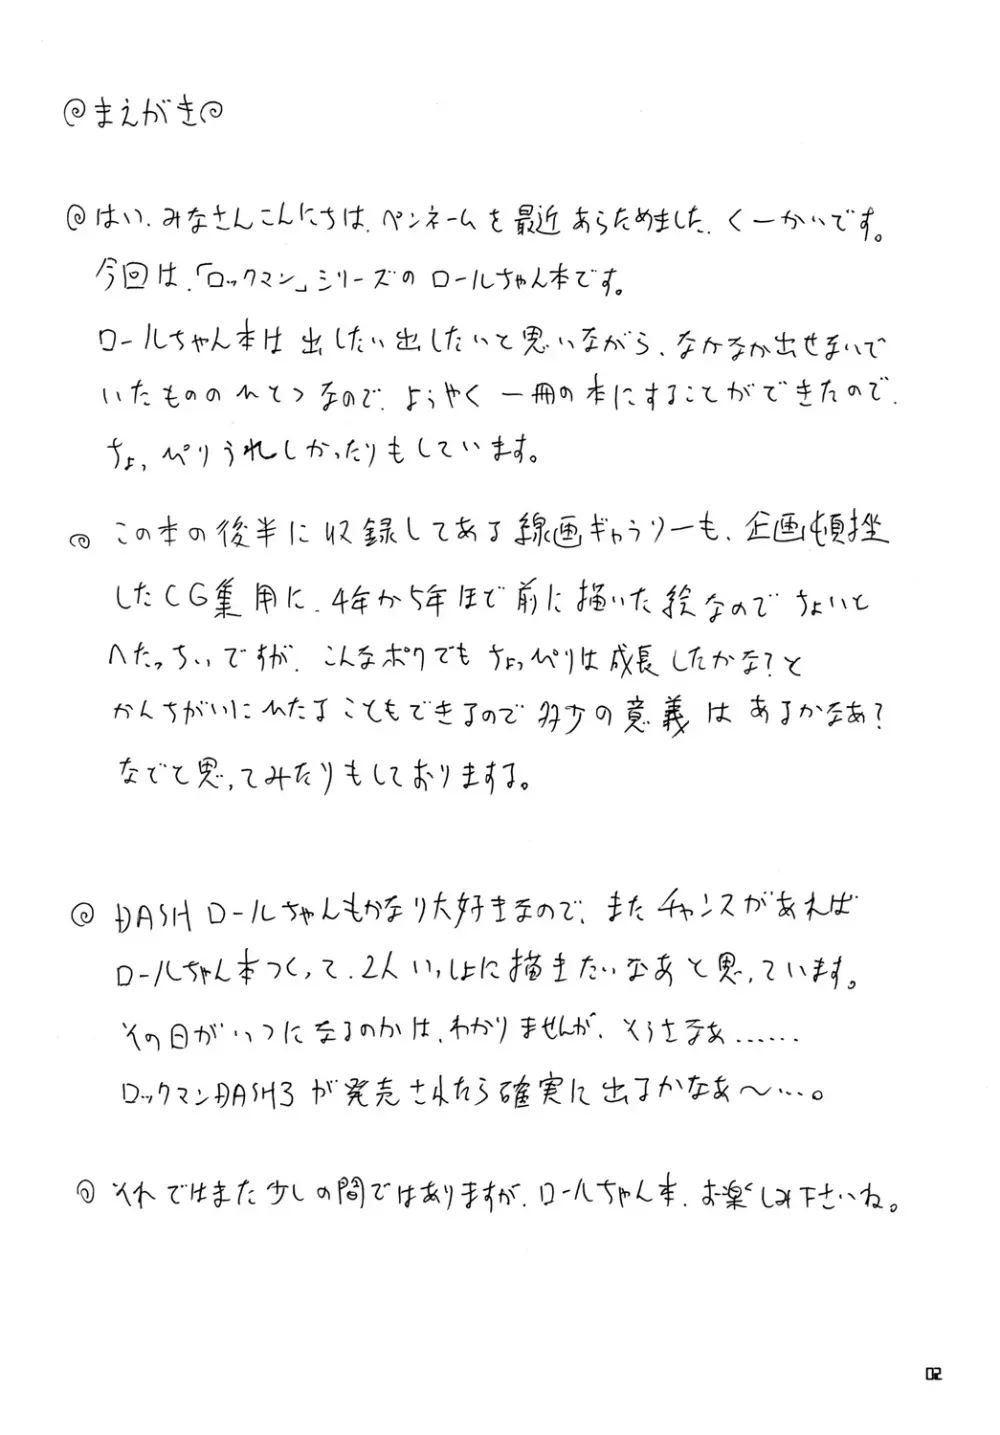 @まえがき@
@はい、みなさんこんにちは、ペンネームを最近あらためました、くーかいです。
今回は、「ロックマン」シリーズのロールちゃん本です。
ロールちゃん本は出したい出したいと思いながら、なかなか出せないで
いたもののひとつなので、ようやく一冊の本にすることができたので、
ちょっぴりうれしかったりもしています。
@この本の後半に収録してある線画ギャラリーも、企画頓挫
したCG集用に、4年から5年ほど前に描いた絵なのでちょいと
へたっちぃですが、こんなボクでもちょっぴりは成長したかな?と
かんちがいにひたることもできるので多少の意義はあるかなあ?
などと思ってみたりもしておりまする。
@DASHロールちゃんもかなり大好きなので、またチャンスがあれば
ロールちゃん本つくって、2人いっしょに描きたいなあと思っています。
その日がいつになるのかは、わかりませんが、そうさなあ……
ロックマンDASH3が発売されたら確実に出るかなあ〜…。
@それではまた少しの間ではありますが、ロールちゃん本、お楽しみ下さいね。
02